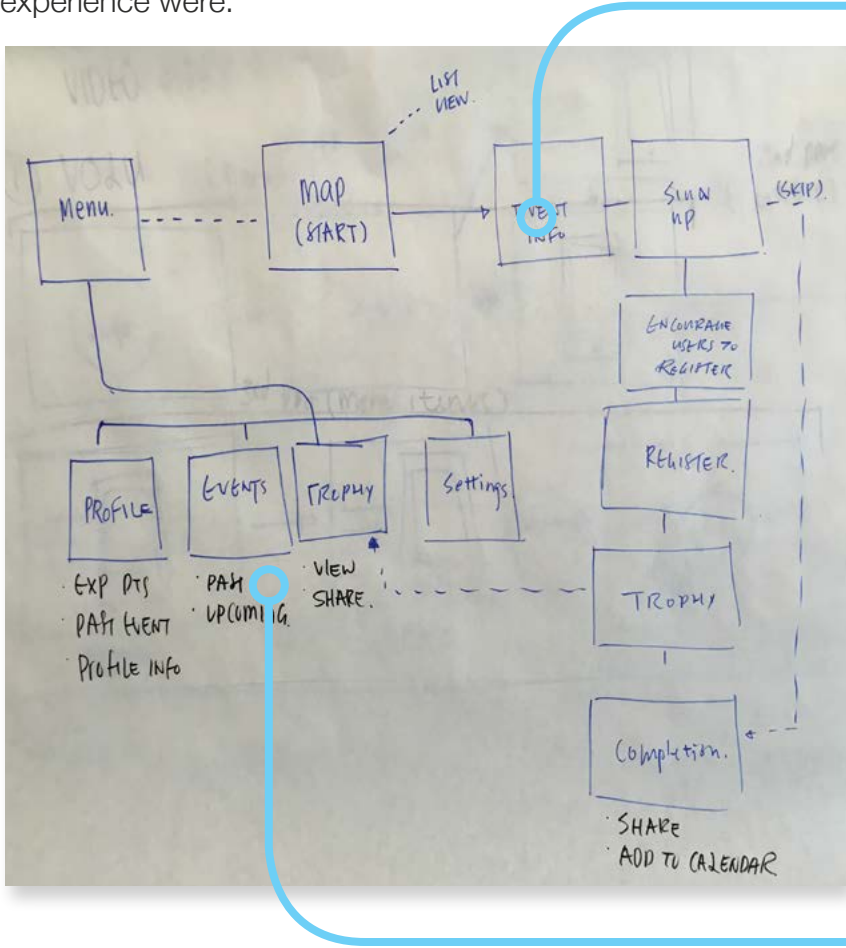 experience were:
LIST
VIEW.
Menu.
MAP
(START)
EVENT
INFO
SIGN
UP
(SKIP).
ENCOURAGE
USERS TO
REGISTER
REGISTER.
PROFILE
EVENTS
TROPHY
Settings
· EXP PTS
· PAST EVENT
· Profile INFO
· PAST
· UPCOMING.
· VIEW
· SHARE.
TROPHY
Completion.
· SHARE
· ADD TO CALENDAR